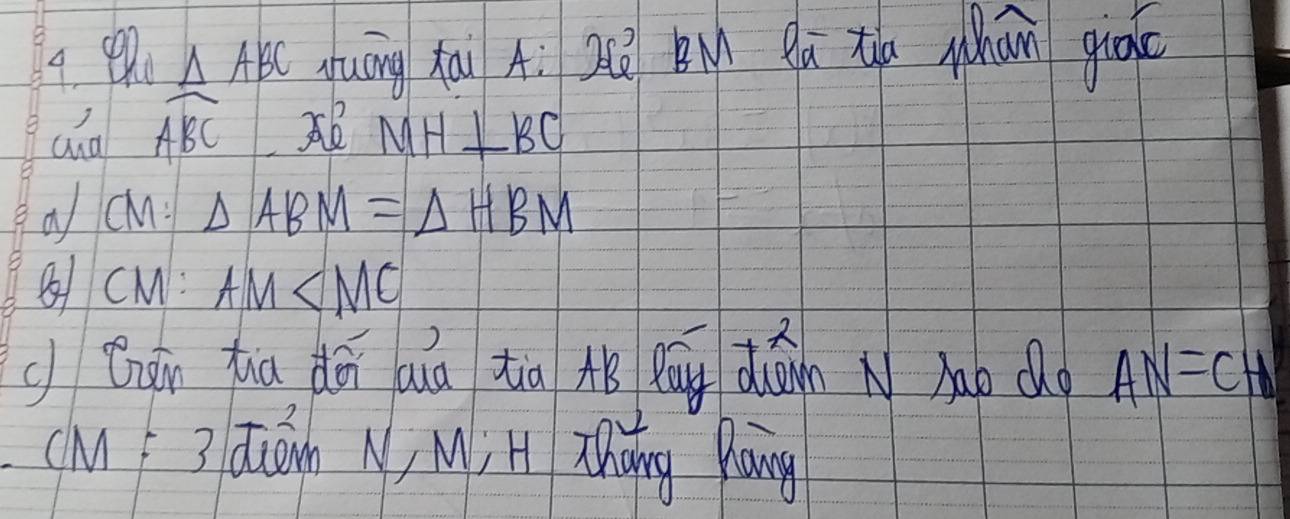 4. Cho Δ ABC vuông tại A. Kẻ BM là tia phân giác
của \widehat{ABC}. Kẻ MH ⊥ BC
a) CM: Δ ABM = Δ HBM
b) CM: AM < MC
c) Trên tia đối của tia AB lấy điểm N sao cho AN = CH
CM: 3 điểm N, M, H thẳng hàng